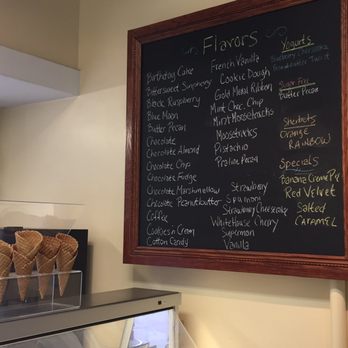 Flavors
Birthday Cake
Bittersweet Symphony
Black Raspberry
Blue Moon
Butter Pecan
Chocolate
Chocolate Almond
Chocolate Chip
Chocolate Fudge
Chocolate Marshmellow
Chocolate Peanutbutter
Coffee
Cookies n Cream
Cotton Candy
French Vanilla
Cookie Dough
Gold Metal Ribbon
Mint Choc. Chip
Mint Moosetracks
Moosetracks
Pistachio
Praline Pecan
Strawberry
Strawberry Cheesecake
White House Cherry
Superman
Vanilla
Yogurts
Blueberry Cheesecake
Peanutbutter Twist
Sugar Free
Butter Pecan
Sherbets
ORANGE
RAINBOW
Specials
Banana Creme Pie
Red Velvet
Salted
CARAMEL